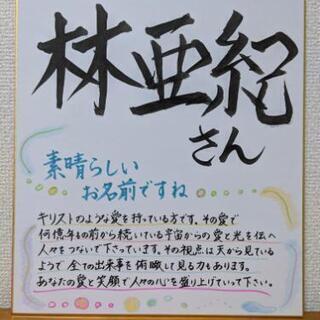 林亜紀
さん
素晴らしい
お名前ですね
キリストのような愛を持っている方です。その愛で
何億年もの前から続いている宇宙からの愛と光を伝へ
人々をつないで下さっています。その視点は天から見ている
ようで全ての出来事を俯瞰して見る力もあります。
あなたの愛と笑顔で人々の心を盛り上げていって下さい。